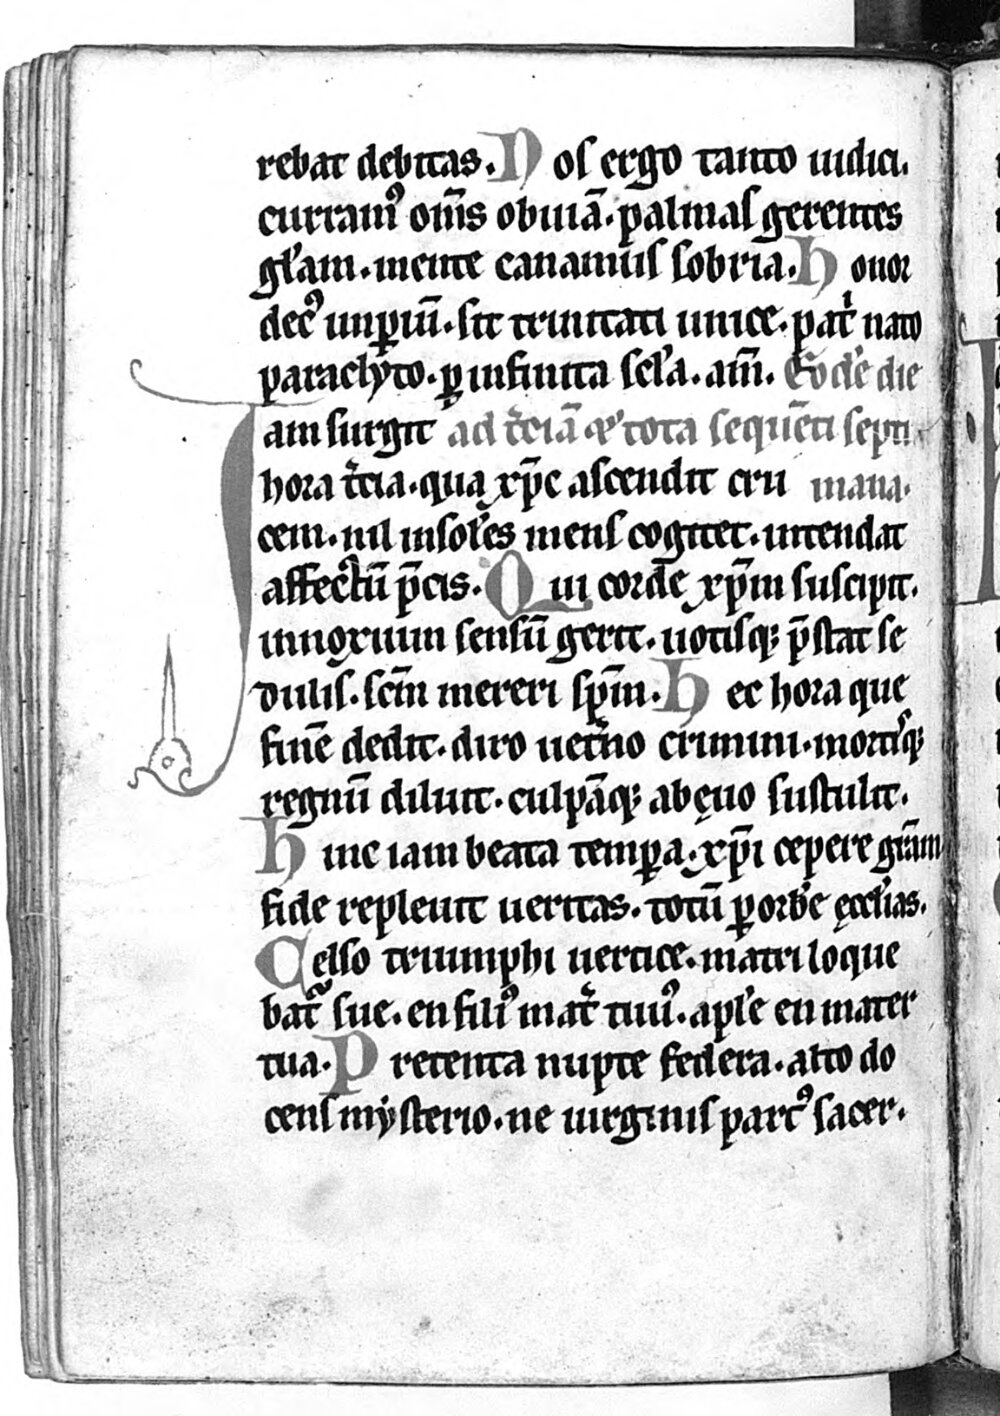 rebat debitas. Nos ergo tanto iudici.
curram⁹ om̄s obuiā. palmas gerentes
gl̓am. mente canamus sobria. Honor
dec⁹ imp̲iū. sit trinitati unice. pat̓ nato
paraclyto. p̲ infinita sc̓la. am̄. Eod̓e die
Iam surgit ad t̓ciā & tota sequēti septi
hora t̓cia. qua xp̄c ascendit cru mana.
cem. nil insol̓es mens cogitet. intendat
affectū p̄cis. Qui corde xp̄m suscipit.
innoxium sensū gerit. uotisq; p̄stat se
dulis. sc̄m mereri sp̄m. Hec hora que
finē dedit. diro uet̓no crimini. mortisq;
regnū diluit. culpāq; ab ęuo sustulit.
Hinc iam beata temp̲a. xp̄i cepere gr̄am
fide repleuit ueritas. totū p̲ orbē ęccl̓ias.
Celso triumphi uertice. matri loque
bat᷑ sue. en fili⁹ mat̓ tuus. apl̓e en mater
tua. Pretenta nupte federa. alto do
cens mysterio. ne uirginis part⁹ sacer.